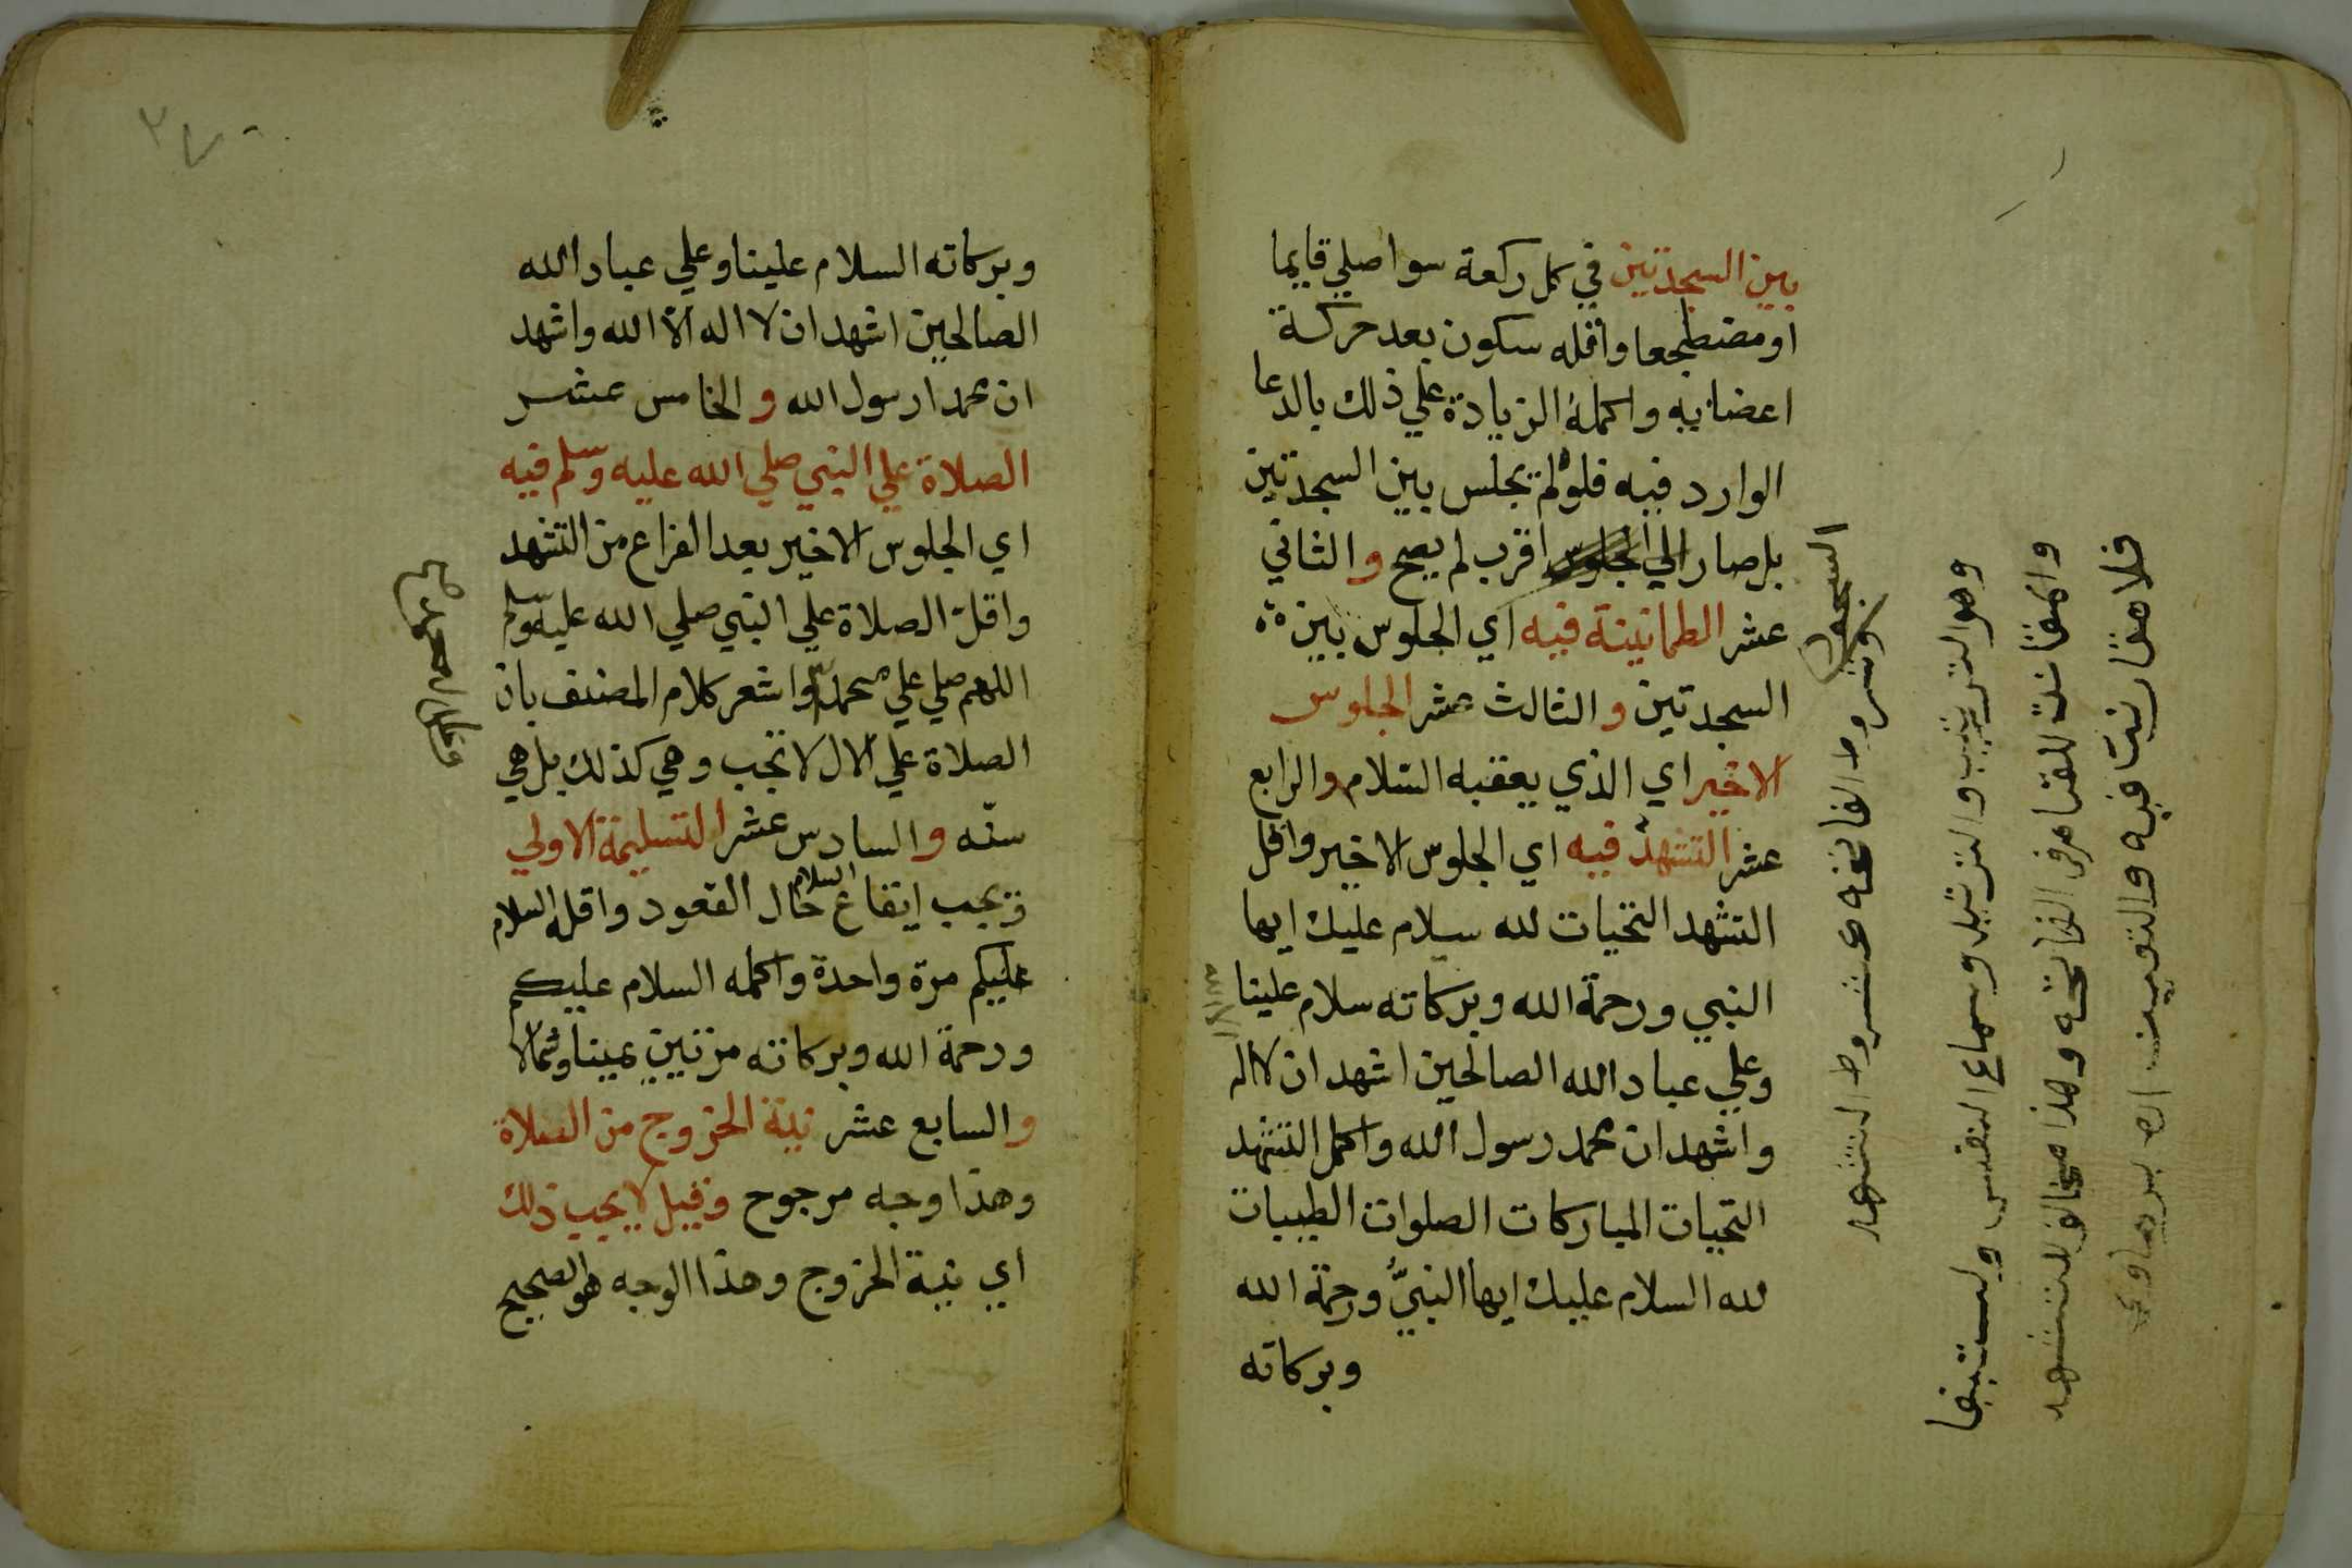 بين السجدتين في كل ركعة سوا صلي قايما
او مضطجعا واقله سكون بعد حركة
اعضايه واكمله الزيادة علي ذلك بالدعا
الوارد فيه فلو لم يجلس بين السجدتين
بل صار الي الجلوس اقرب لم يصح والثاني
عشر الطمانينة فيه اي الجلوس بين
السجدتين والثالث عشر الجلوس
الاخير اي الذي يعقبه السلام والرابع
عشر التشهد فيه اي الجلوس الاخير واقل
التشهد التحيات لله سلام عليك ايها
النبي ورحمة الله وبركاته سلام علينا
وعلي عباد الله الصالحين اشهد ان لا اله
واشهد ان محمد رسول الله واكمل التشهد
التحيات المباركات الصلوات الطيبات
لله السلام عليك ايها النبيُّ ورحمة الله
وبركاته
السجود
وشروط الفاتحه وشروط التشهد
وهو الترتيب والترتيل وسماع النفس
للقامرفى الفاتحه وهذا مخالف للتشهد
فيه والتعيين
وبركاته السلام علينا وعلي عباد الله
الصالحين اشهد ان لا اله الا الله واشهد
ان محمدا رسول الله والخامس عشر
الصلاة علي النبي صلي الله عليه وسلم فيه
اي الجلوس الاخير بعد الفراغ من التشهد
واقل الصلاة علي النبي صلي الله عليه وسلم
اللهم صلي علي محمد واشعر كلام المصنف بان
الصلاة علي الال لا تجب وهي كذلك بل هي
سنّه والسادس عشر التسليمة الاولي
ويجب ايقاع السلام حال القعود واقله السلام
عليكم مرة واحدة واكمله السلام عليكم
ورحمة الله وبركاته مرتين يمينا وشمالا
والسابع عشر نية الخروج من الصلاة
وهذا وجه مرجوح وقيل لا يجب ذلك
اي نية الخروج وهذا الوجه هو الصحيح